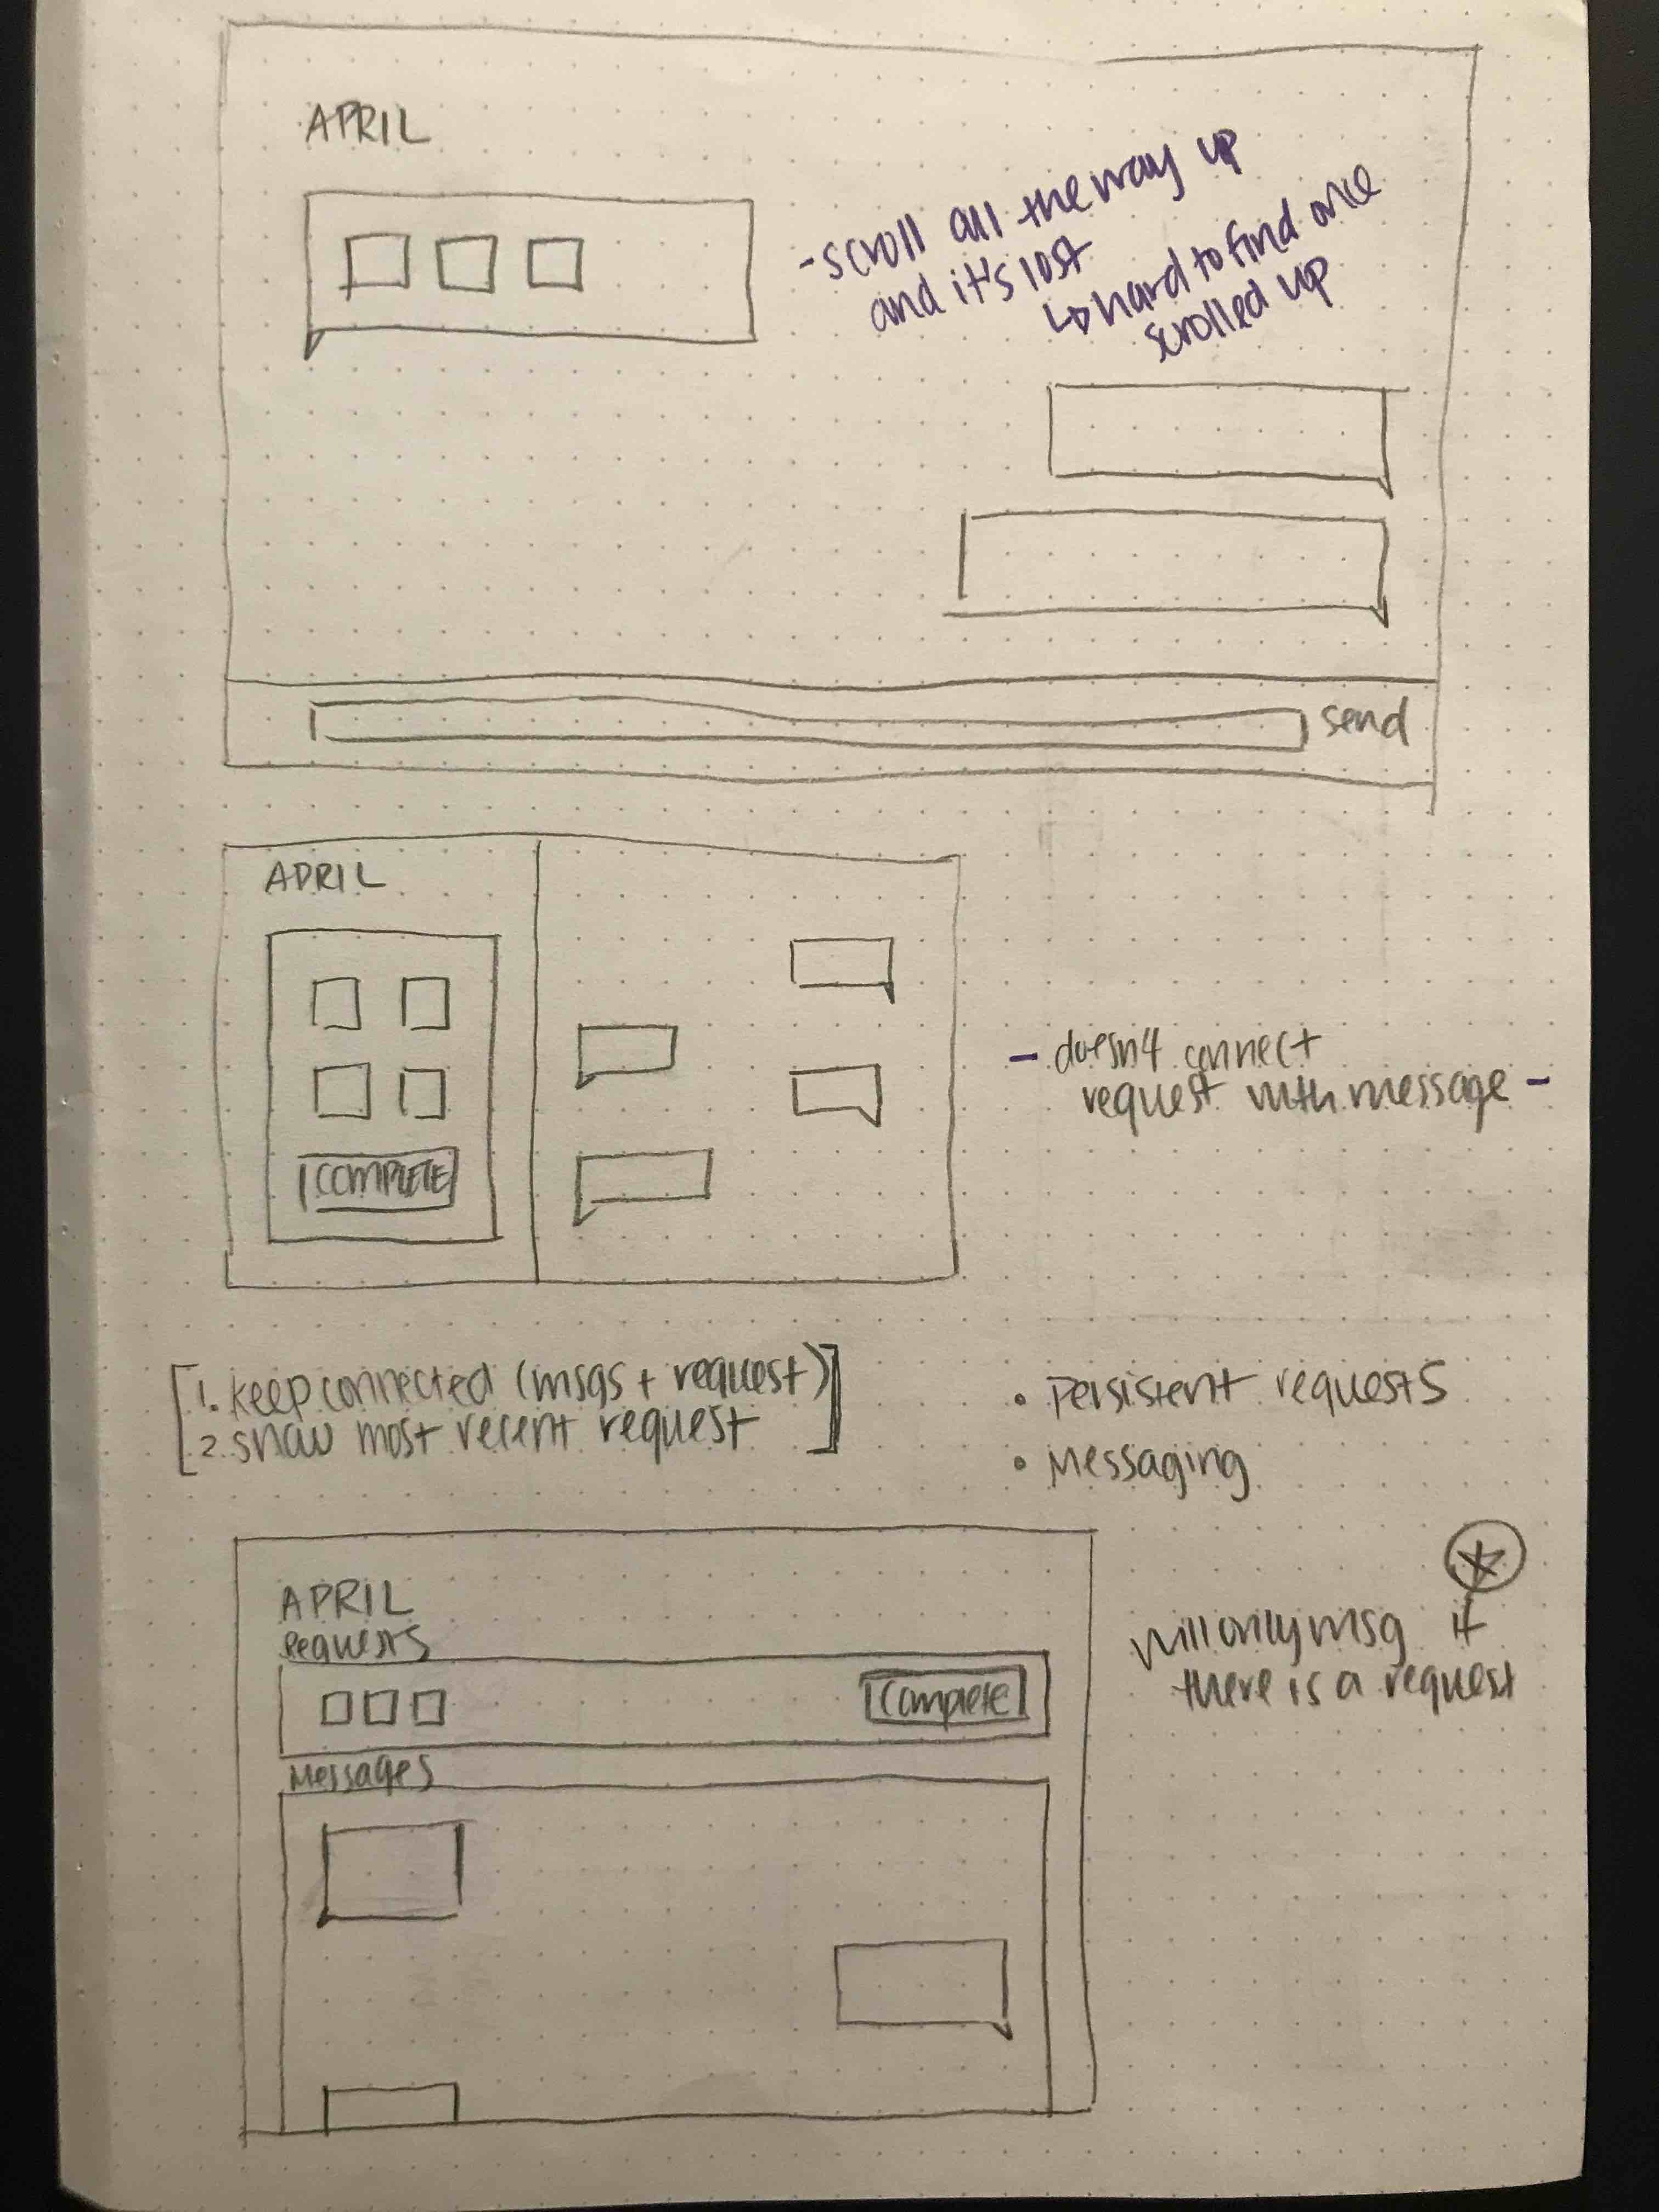 APRIL
-scroll all the way up
and it's lost
↳ hard to find once
scrolled up
send
APRIL
COMPLETE
- doesn't connect
request with message -
1. keep connected (msgs + request)
2. show most recent request
• Persistent requests
• Messaging
APRIL
Requests
Complete
Messages
will only msg if
there is a request